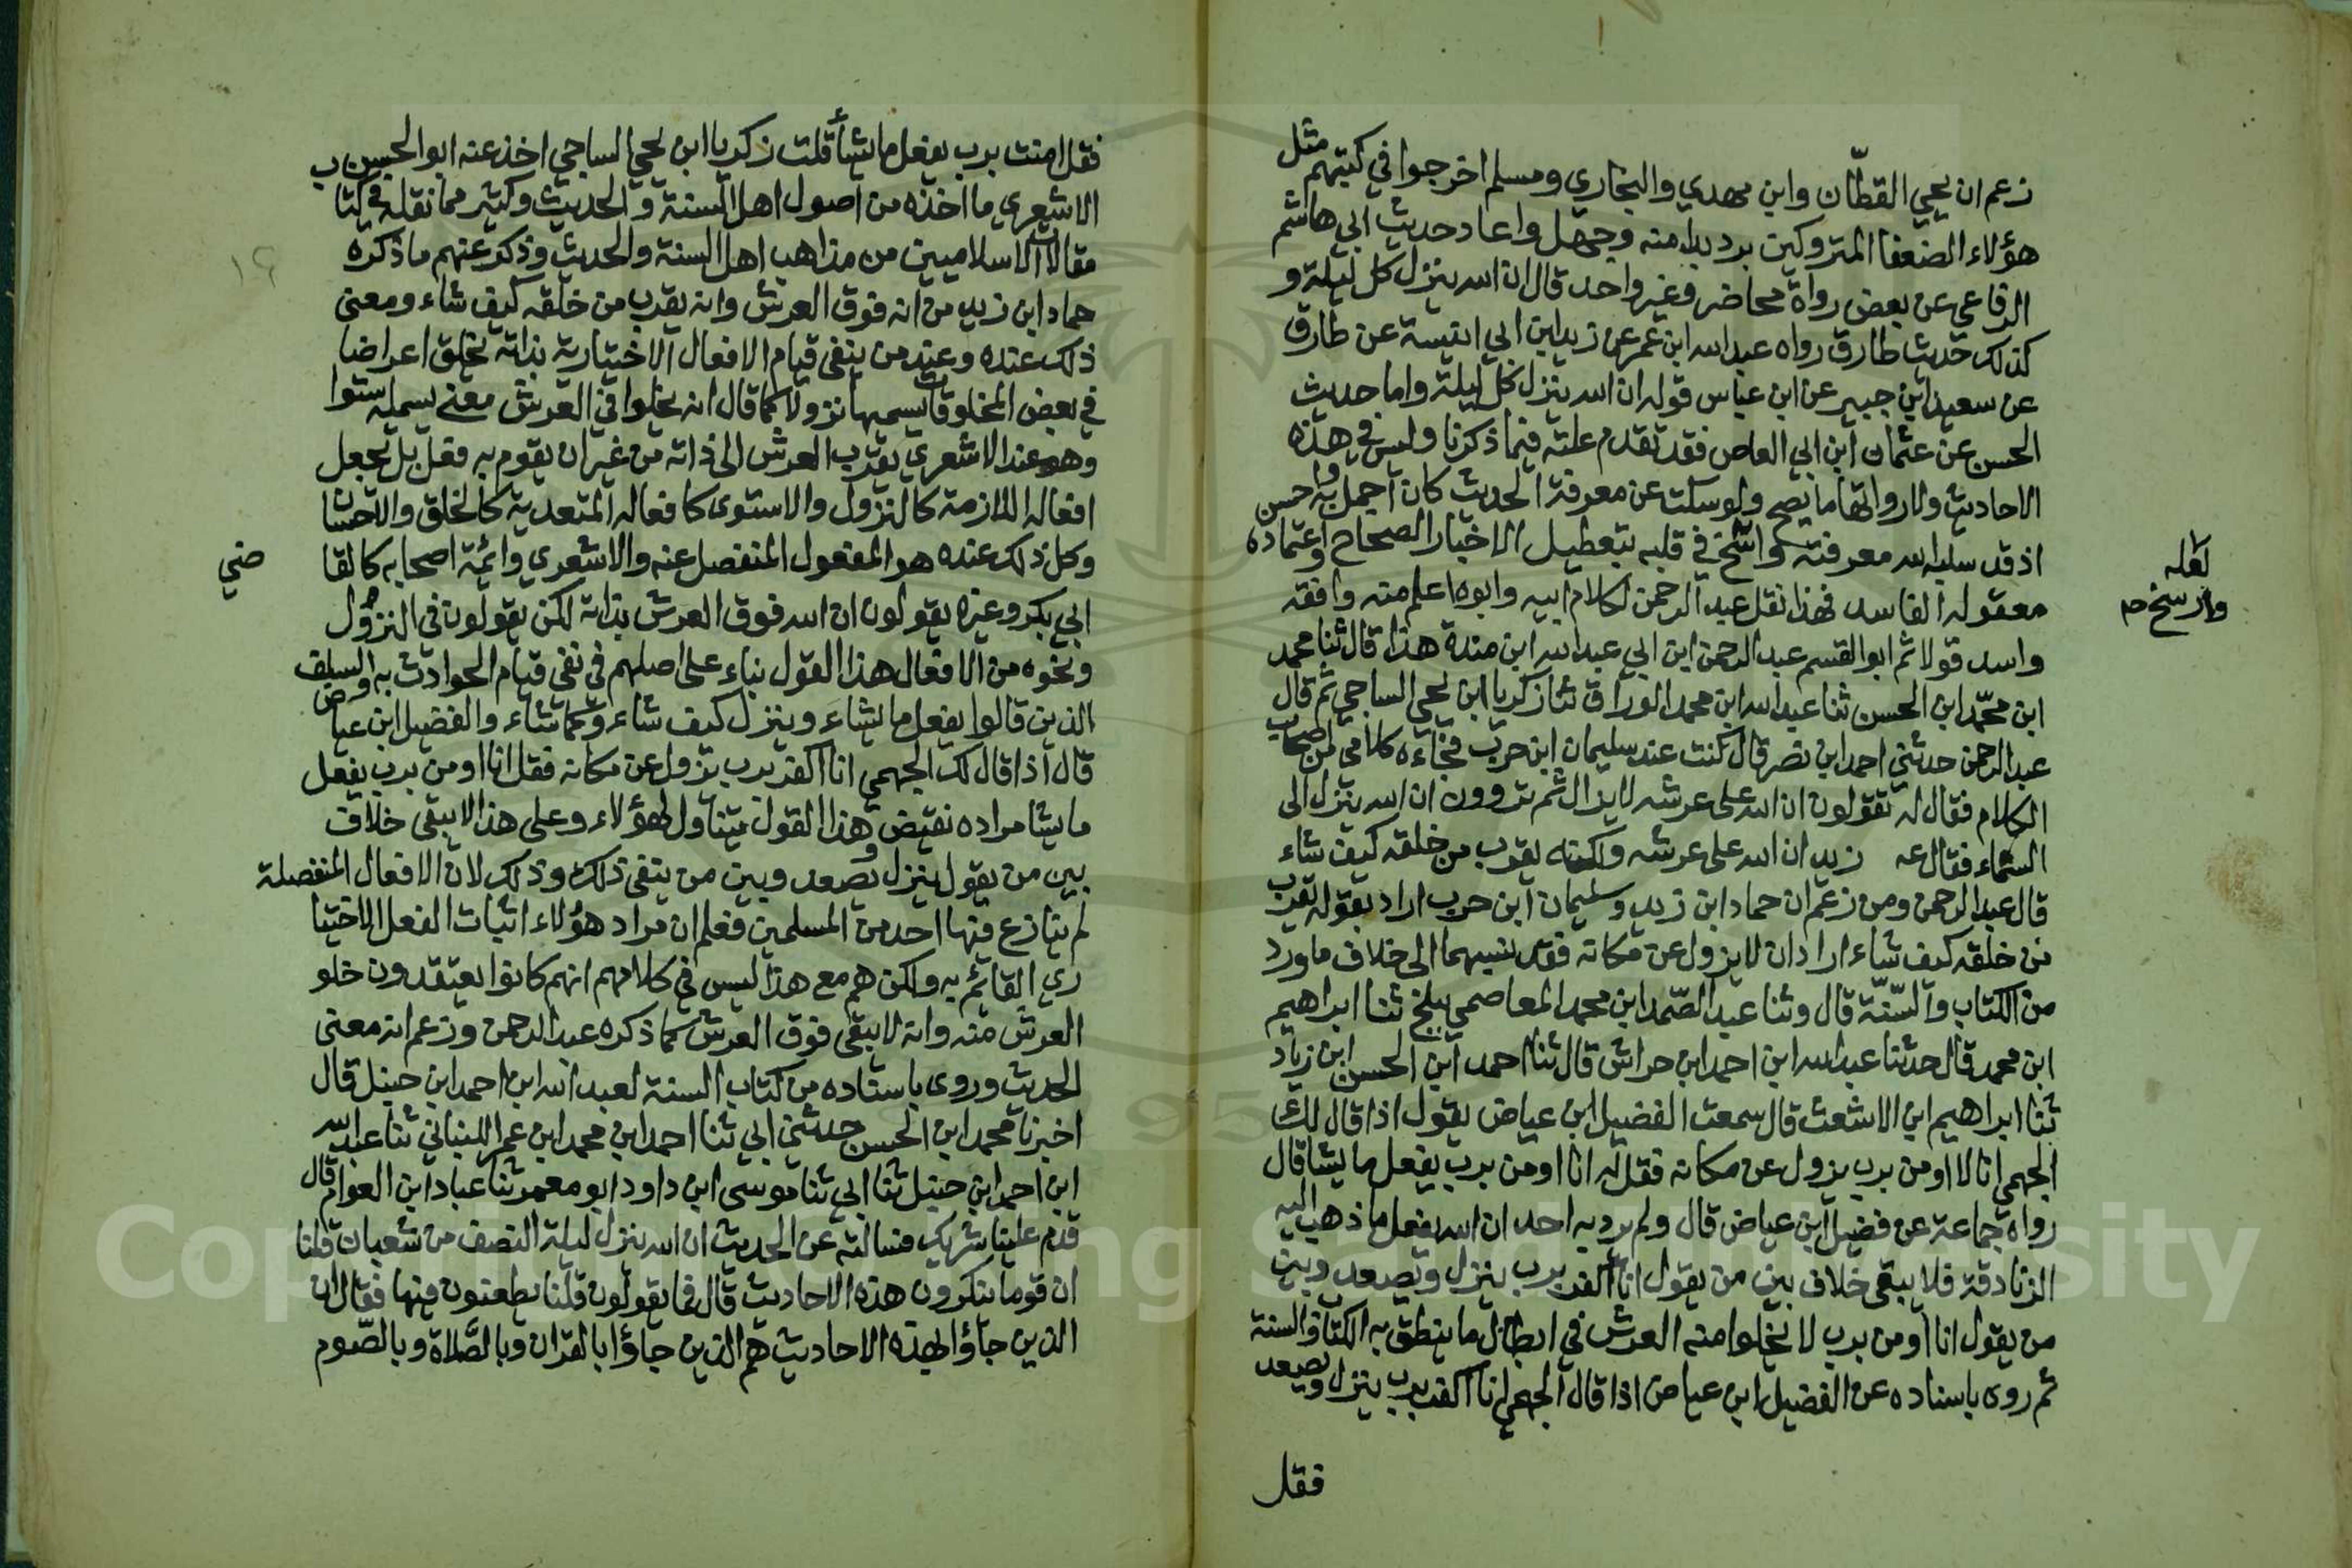 زعم ان يحيي القطّان وابن مهدي والبخاري ومسلم اخرجوا في كتبهم مثل
هؤلاء الضعفا المتروكين برد بدا منه وجهل واعاد حديث ابي هاشم
الرفاعي عن بعض رواة محاضر وغير واحد قال ان الله ينزل كل ليلة و
كذلك حديث طارق رواه عبد الله ابن عمر عن زيد ابن ابي انيسة عن طارق
عن سعيد ابن جبير عن ابن عباس قوله ان الله ينزل كل ليلة واما حديث
الحسن عن عثمان ابن ابي العاص فقد تقدم علته فيما ذكرنا وليس في هذه
الاحاديث ولا رواتها ما يصح ولو سكت عن معرفة الحديث كان اجمل به واحسن
اذ قد سلبه الله معرفته واتسخ في قلبه بتعطيل الاخبار الصحاح واعتماده
لعله
وارسخ صح
معقوله الفاسد فهذا نقل عبد الرحمن لكلام ابيه وابوه اعلم منه وافقه
واسد قولا ثم ابو القسم عبد الرحمن ابن ابي عبد الله ابن مندة هذا قال ثنا محمد
ابن محمّد ابن الحسن ثنا عبد الله ابن محمد الوراق ثنا زكريا ابن يحيي الساجي ثم قال
عبد الرحمن حدثني احمد ابن نصر قال كنت عند سليمان ابن حرب فجاءه كلامي من اصحاب
الكلام فقال له تقولون ان الله على عرشه لا يزال ثم تروون ان الله ينزل الى
السماء فقال عه زيد ان الله على عرشه ولكنه يقرب من خلقه كيف شاء
قال عبد الرحمن ومن زعم ان حماد ابن زيد وسليمان ابن حرب اراد بقوله يقرب
من خلقه كيف شاء اراد ان لا يزول عن مكانه فقد نسبهما الى خلاف ما ورد
من الكتاب والسّنّة قال وثنا عبد الصّمد ابن محمد المعاصمي ببلخ ثنا ابراهيم
ابن محمد قال حدثنا عبد الله ابن احمد ابن حراش قال ثنا احمد ابن الحسن ابن زياد
ثنا ابراهيم ابن الاشعث قال سمعت الفضيل ابن عياض يقول اذا قال لك
الجهمي انا لا اومن برب يزول عن مكانه فقل له انا اومن برب يفعل ما يشا قال
رواه جماعة عن فضيل ابن عياض قال ولم يرد به احد ان الله يفعل ما ذهب اليه
الزنادقة فلا يبقى خلاف بين من يقول انا اكفر برب ينزل ويصعد وبين
من يقول انا اومن برب لا يخلوا منه العرش في ابطال ما ينطق به الكتاب والسنة
ثم روى باسناده عن الفضيل ابن عياض اذا قال الجهمي انا اكفر برب ينزل ويصعد
فقل
فقل امنت برب يفعل ما يشأ قلت زكريا ابن يحيي الساجي اخذ عنه ابو الحسن
الاشعري ما اخذه من اصول اهل السنة والحديث وكثير مما نقله في كتاب
مقالات الاسلاميين من مذاهب اهل السنة والحديث وذكر عنهم ما ذكره
١٩
حماد ابن زيد من انه فوق العرش وانه يقرب من خلقه كيف شاء ومعنى
ذلك عنده وعند من ينفى قيام الافعال الاختيارية بذاته يخلق اعراضا
في بعض المخلوقات يسميها نزولا كما قال انه يخلوا في العرش معنى يسميه استوا
وهو عند الاشعري يقرب العرش الى ذاته من غير ان يقوم به فعل بل يجعل
افعاله اللازمة كالنزول والاستوى كافعاله المتعدية كالخلق والاحسان
وكل ذلك عنده هو المفعول المنفصل عنه والاشعري وائمة اصحابه كالقا
ضي
ابي بكر وغيره يقولون ان الله فوق العرش بذاته لكن يقولون في النزول
ونحوه من الافعال هذا القول بناء على اصلهم في نفي قيام الحوادث به والسلف
الذين قالوا يفعل ما يشاء وينزل كيف شاء وكما شاء والفضيل ابن عياض
قال اذا قال لك الجهمي انا اكفر برب يزول عن مكانه فقل انا اومن برب يفعل
ما يشا مراده نقيض هذا القول يتناول لهؤلاء وعلى هذا لا يبقى خلاف
بين من يقول ينزل ويصعد وبين من ينفى ذلك وذلك لان الافعال المنفصلة
لم يتنازع فيها احد من المسلمين فعلم ان مراد هؤلاء اثبات الفعل الاختيا
ري القائم به ولكن هم مع هذا ليس في كلامهم انهم كانوا يعتقدون خلو
العرش منه وانه لا يبقى فوق العرش كما ذكره عبد الرحمن وزعم انه معنى
الحديث وروى باسناده من كتاب السنة لعبد الله ابن احمد ابن حنبل قال
اخبرنا محمد ابن الحسن حدثني ابي ثنا احمد ابن محمد ابن عمر اللبناني ثنا عبد الله
ابن احمد ابن حنبل ثنا ابي ثنا موسى ابن داود ابو معمر ثنا عباد ابن العوام قال
قدم علينا شريك فسالته عن الحديث ان الله ينزل ليلة النصف من شعبان قلنا
ان قوما ينكرون هذه الاحاديث قال فما يقولون قلنا يطعنون فيها فقال ان
الذين جاؤا بهذه الاحاديث هم الذين جاؤا بالقران وبالصّلاة وبالصّوم